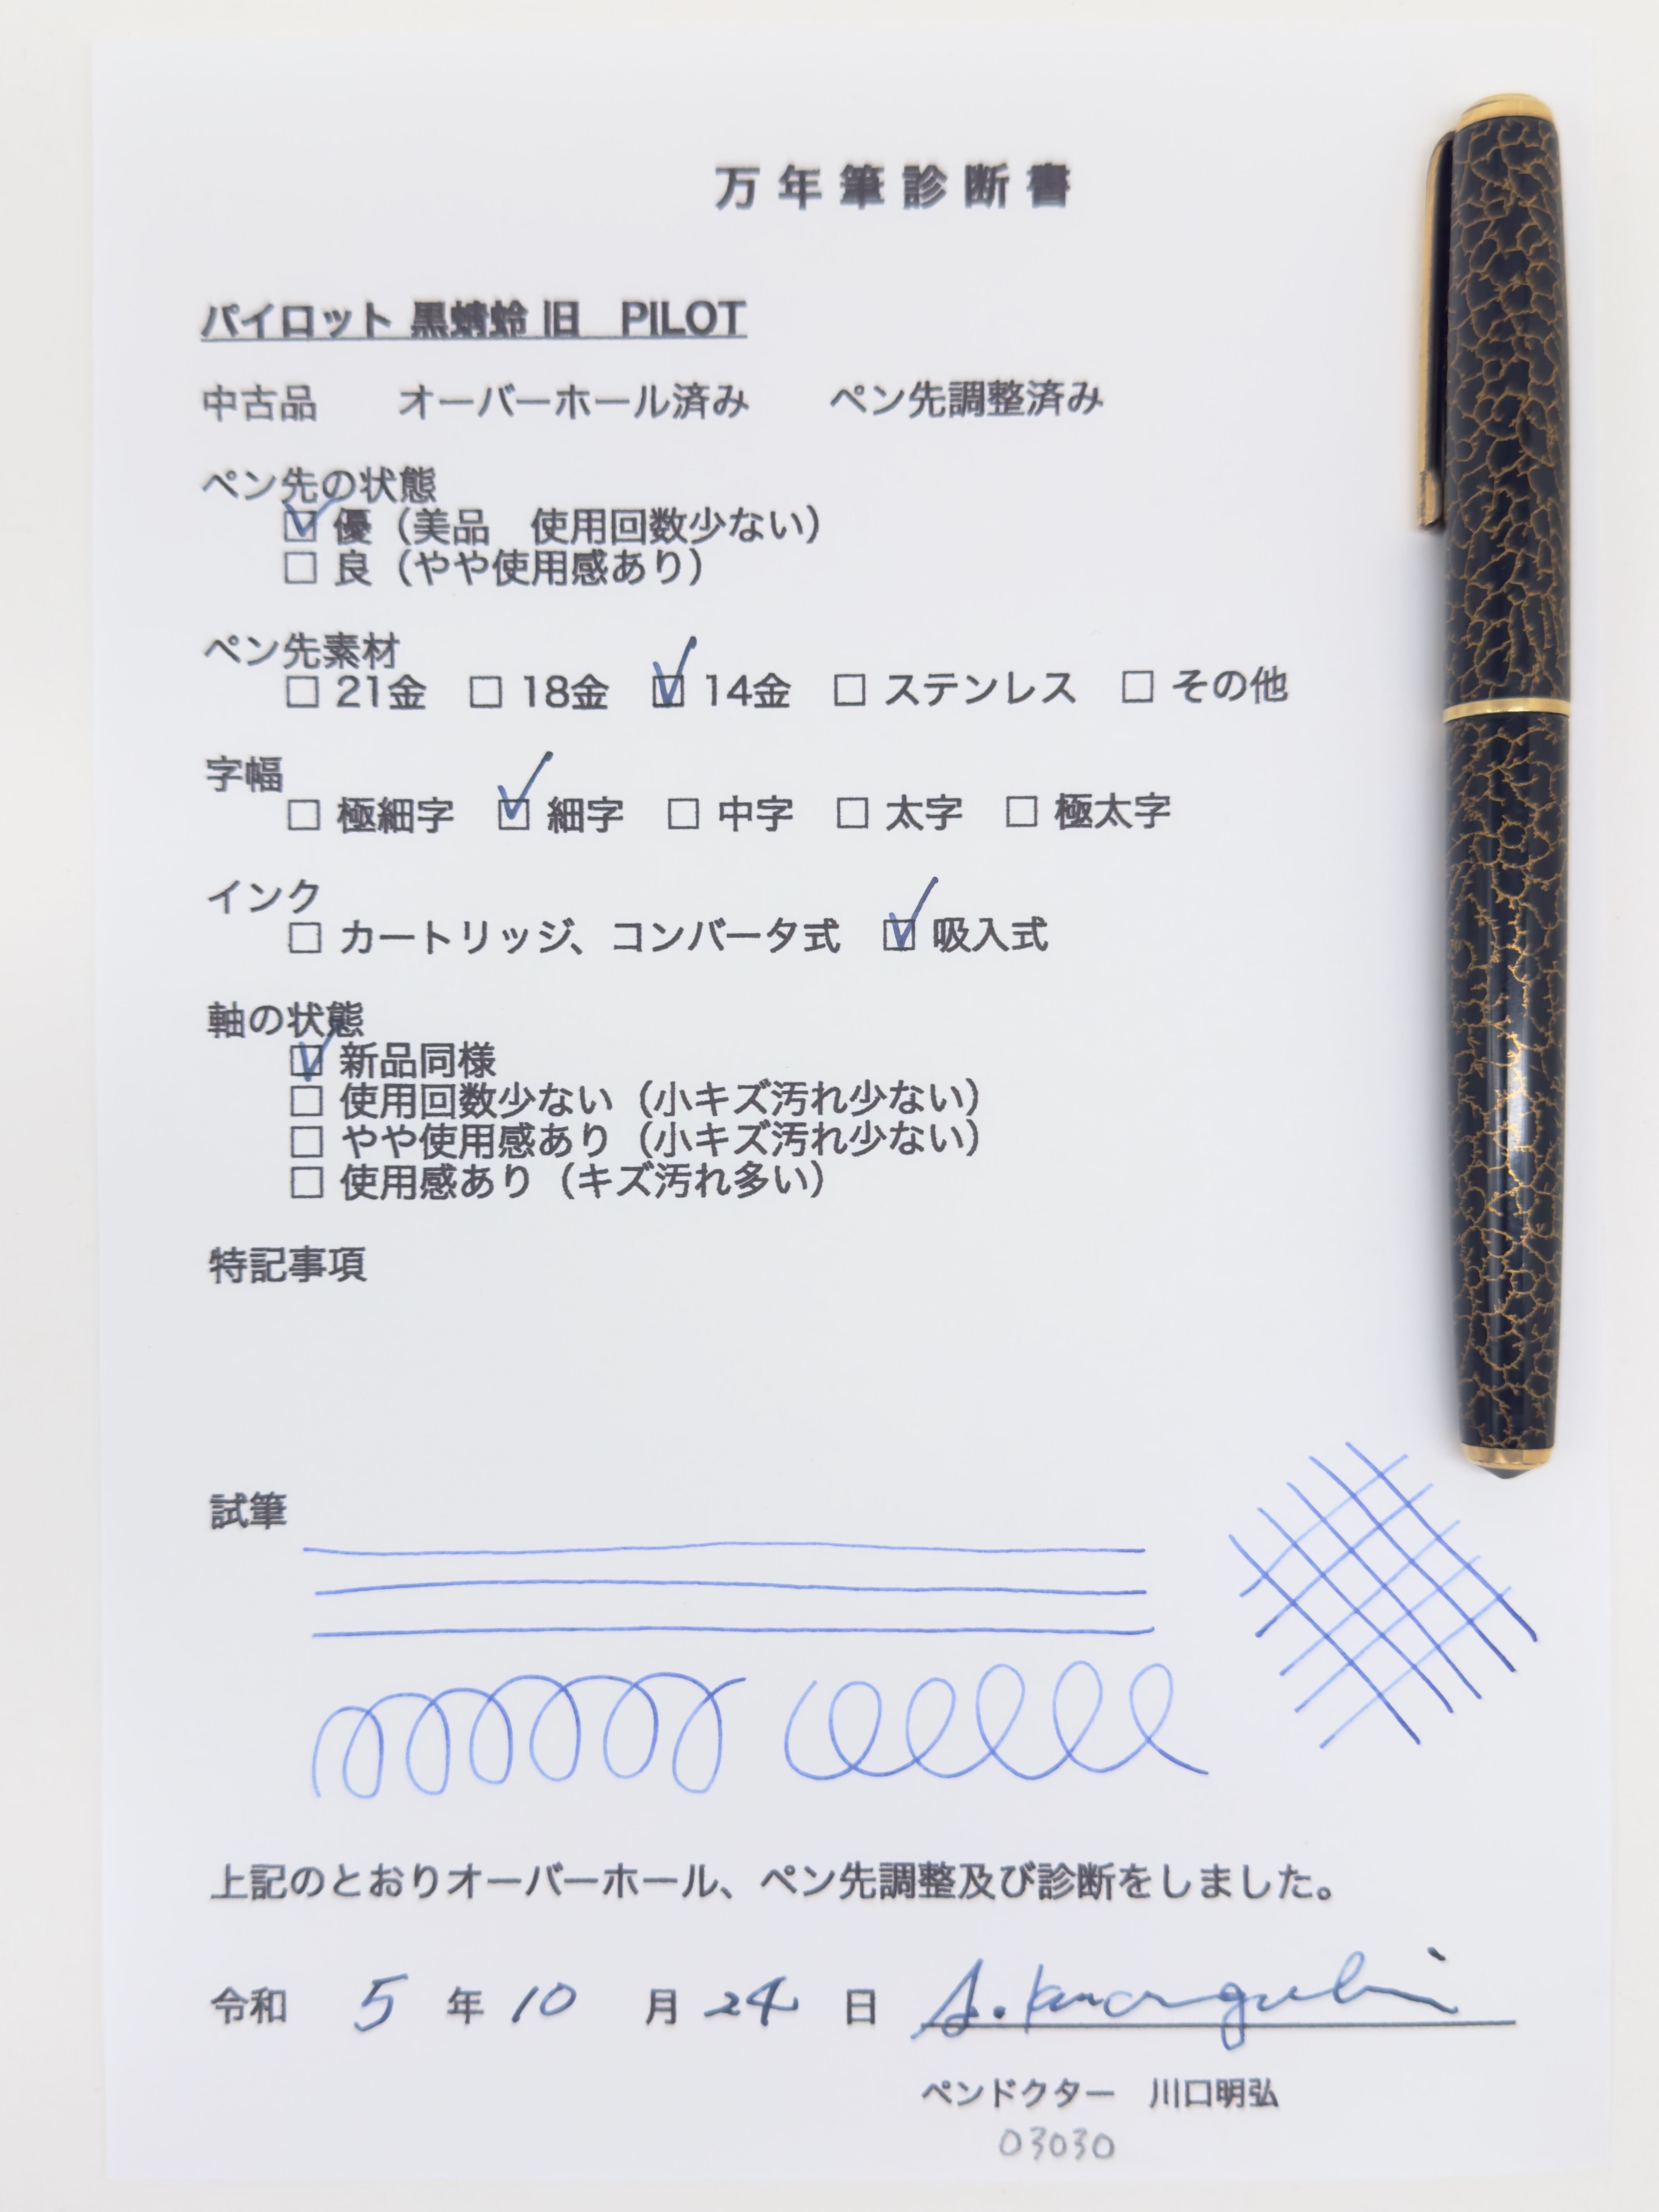 万年筆診断書
パイロット 黒蜻蛉 旧　PILOT
中古品　　オーバーホール済み　　ペン先調整済み
ペン先の状態
☑ 優（美品　使用回数少ない）
□ 良（やや使用感あり）
ペン先素材
□ 21金　□ 18金　☑ 14金　□ ステンレス　□ その他
字幅
□ 極細字　☑ 細字　□ 中字　□ 太字　□ 極太字
インク
□ カートリッジ、コンバータ式　☑ 吸入式
軸の状態
☑ 新品同様
□ 使用回数少ない（小キズ汚れ少ない）
□ やや使用感あり（小キズ汚れ少ない）
□ 使用感あり（キズ汚れ多い）
特記事項
試筆
上記のとおりオーバーホール、ペン先調整及び診断をしました。
令和　5　年　10　月　24　日　A. Kawaguchi
ペンドクター　川口明弘
03030